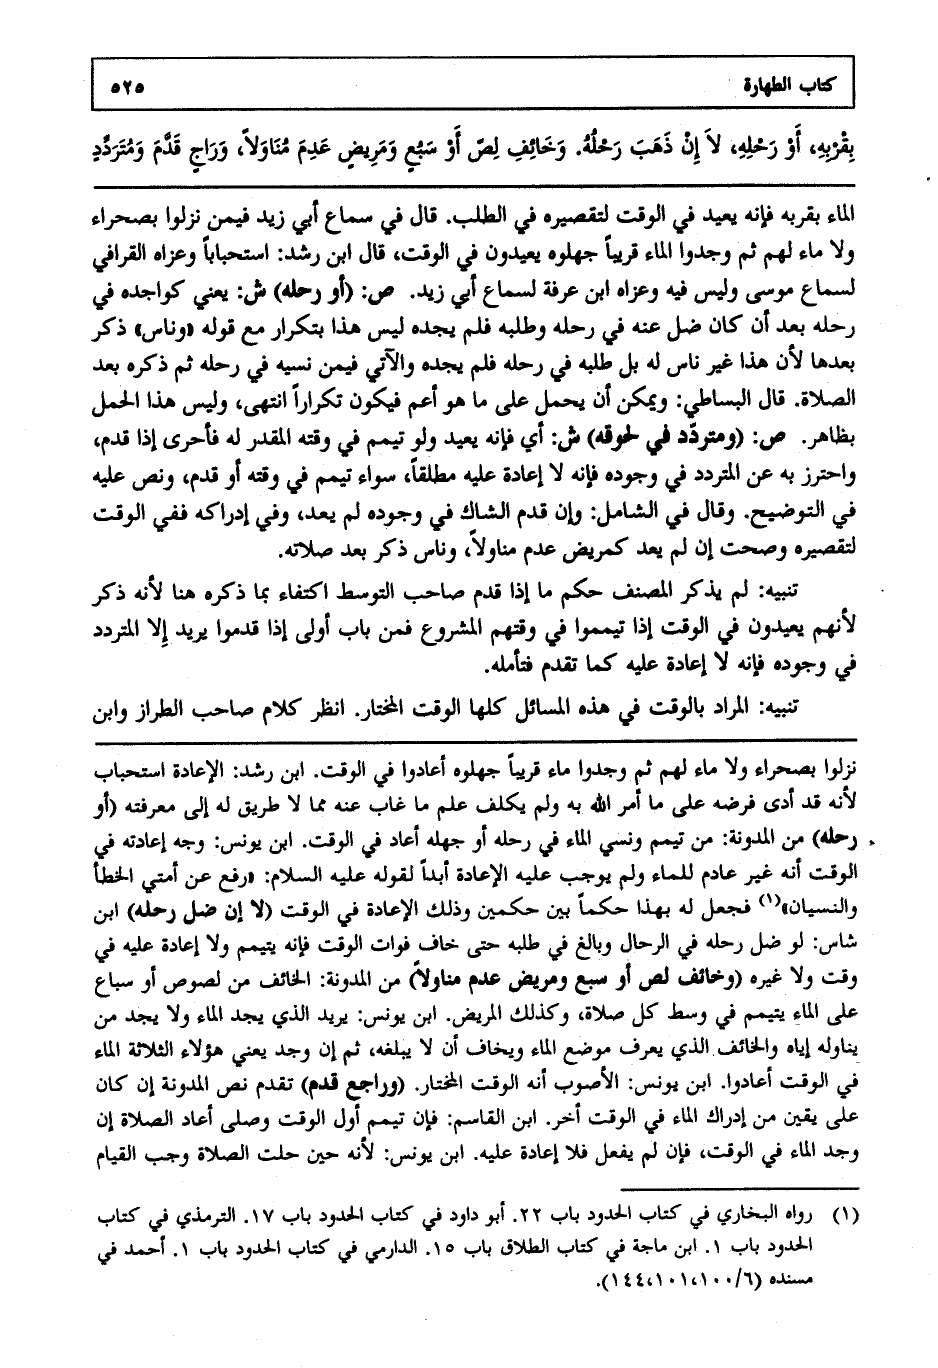 كتاب الطهارة ٥٢٥
بِقُرْبِهِ، أَوْ رَحْلِهِ، لاَ إِنْ ذَهَبَ رَحْلُهُ. وَخَائِفِ لِصّ أَوْ سَبُعٍ وَمَرِيضٍ عَدِمَ مُنَاوِلاً، وَرَاجٍ قَدَّمَ وَمُتَرَدِّدٍ
الماء بقربه فإنه يعيد في الوقت لتقصيره في الطلب. قال في سماع أبي زيد فيمن نزلوا بصحراء
ولا ماء لهم ثم وجدوا الماء قريباً جهلوه يعيدون في الوقت، قال ابن رشد: استحباباً وعزاه القرافي
لسماع موسى وليس فيه وعزاه ابن عرفة لسماع أبي زيد. ص: (أو رحله) ش: يعني كواجده في
رحله بعد أن كان ضل عنه في رحله وطلبه فلم يجده ليس هذا بتكرار مع قوله «وناس» ذكر
بعدها لأن هذا غير ناس له بل طلبه في رحله فلم يجده والآتي فيمن نسيه في رحله ثم ذكره بعد
الصلاة. قال البساطي: ويمكن أن يحمل على ما هو أعم فيكون تكراراً انتهى، وليس هذا الحمل
بظاهر. ص: (ومتردّد في لحوقه) ش: أي فإنه يعيد ولو تيمم في وقته المقدر له فأحرى إذا قدم،
واحترز به عن المتردد في وجوده فإنه لا إعادة عليه مطلقاً، سواء تيمم في وقته أو قدم، ونص عليه
في التوضيح. وقال في الشامل: وإن قدم الشاك في وجوده لم يعد، وفي إدراكه ففي الوقت
لتقصيره وصحت إن لم يعد كمريض عدم مناولاً، وناس ذكر بعد صلاته.
تنبيه: لم يذكر المصنف حكم ما إذا قدم صاحب التوسط اكتفاء بما ذكره هنا لأنه ذكر
لأنهم يعيدون في الوقت إذا تيمموا في وقتهم المشروع فمن باب أولى إذا قدموا يريد إلا المتردد
في وجوده فإنه لا إعادة عليه كما تقدم فتأمله.
تنبيه: المراد بالوقت في هذه المسائل كلها الوقت المختار. انظر كلام صاحب الطراز وابن
نزلوا بصحراء ولا ماء لهم ثم وجدوا ماء قريباً جهلوه أعادوا في الوقت. ابن رشد: الإعادة استحباب
لأنه قد أدى فرضه على ما أمر الله به ولم يكلف علم ما غاب عنه مما لا طريق له إلى معرفته (أو
رحله) من المدونة: من تيمم ونسي الماء في رحله أو جهله أعاد في الوقت. ابن يونس: وجه إعادته في
الوقت أنه غير عادم للماء ولم يوجب عليه الإعادة أبداً لقوله عليه السلام: «رفع عن أمتي الخطأ
والنسيان»(١) فجعل له بهذا حكماً بين حكمين وذلك الإعادة في الوقت (لا إن ضل رحله) ابن
شاس: لو ضل رحله في الرحال وبالغ في طلبه حتى خاف فوات الوقت فإنه يتيمم ولا إعادة عليه في
وقت ولا غيره (وخائف لص أو سبع ومريض عدم مناولاً) من المدونة: الخائف من لصوص أو سباع
على الماء يتيمم في وسط كل صلاة، وكذلك المريض. ابن يونس: يريد الذي يجد الماء ولا يجد من
يناوله إياه والخائف الذي يعرف موضع الماء ويخاف أن لا يبلغه، ثم إن وجد يعني هؤلاء الثلاثة الماء
في الوقت أعادوا. ابن يونس: الأصوب أنه الوقت المختار. (وراجع قدم) تقدم نص المدونة إن كان
على يقين من إدراك الماء في الوقت أخر. ابن القاسم: فإن تيمم أول الوقت وصلى أعاد الصلاة إن
وجد الماء في الوقت، فإن لم يفعل فلا إعادة عليه. ابن يونس: لأنه حين حلت الصلاة وجب القيام
(١) رواه البخاري في كتاب الحدود باب ٢٢. أبو داود في كتاب الحدود باب ١٧. الترمذي في كتاب
الحدود باب ١. ابن ماجة في كتاب الطلاق باب ١٥. الدارمي في كتاب الحدود باب ١. أحمد في
مسنده (٦/ ١٠٠، ١٠١، ١٤٤).